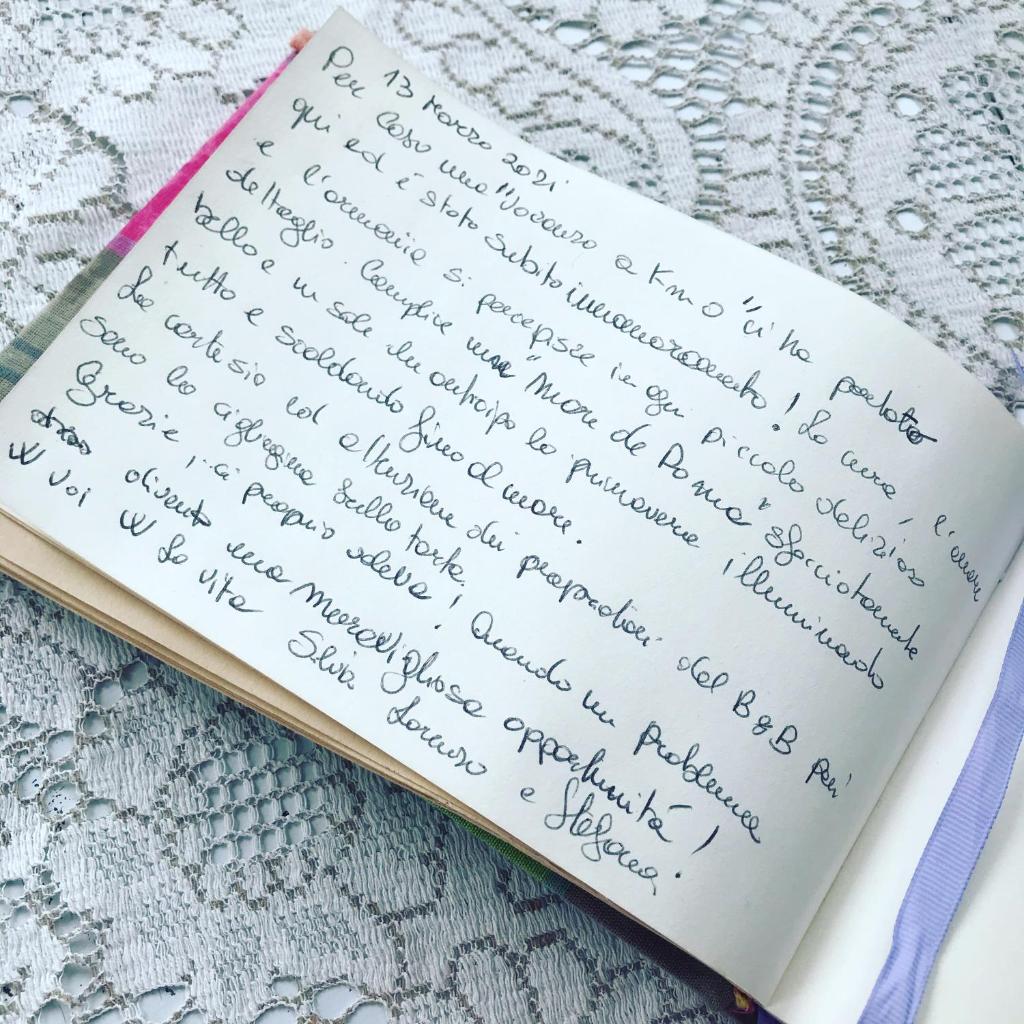 13 Marzo 2021
Per caso una "vacanza a Km 0" ci ha portato
qui ed è stato subito innamoramento! La cura, l'amore
e l'armonia si percepisce in ogni piccolo delizioso
dettaglio. Complice una "Mari de Roma" sfacciatamente
bella e un sole in anticipo la primavera illuminando
tutto e scaldando fino al mare.
La cortesia ed attenzione dei proprietari del B&B poi
sono la ciliegina sulla torta.
Grazie, ci proprio voleva! Quando un problema
diventa una meravigliosa opportunità!
W voi W la vita
Silvia
Lorenzo
e Stefania